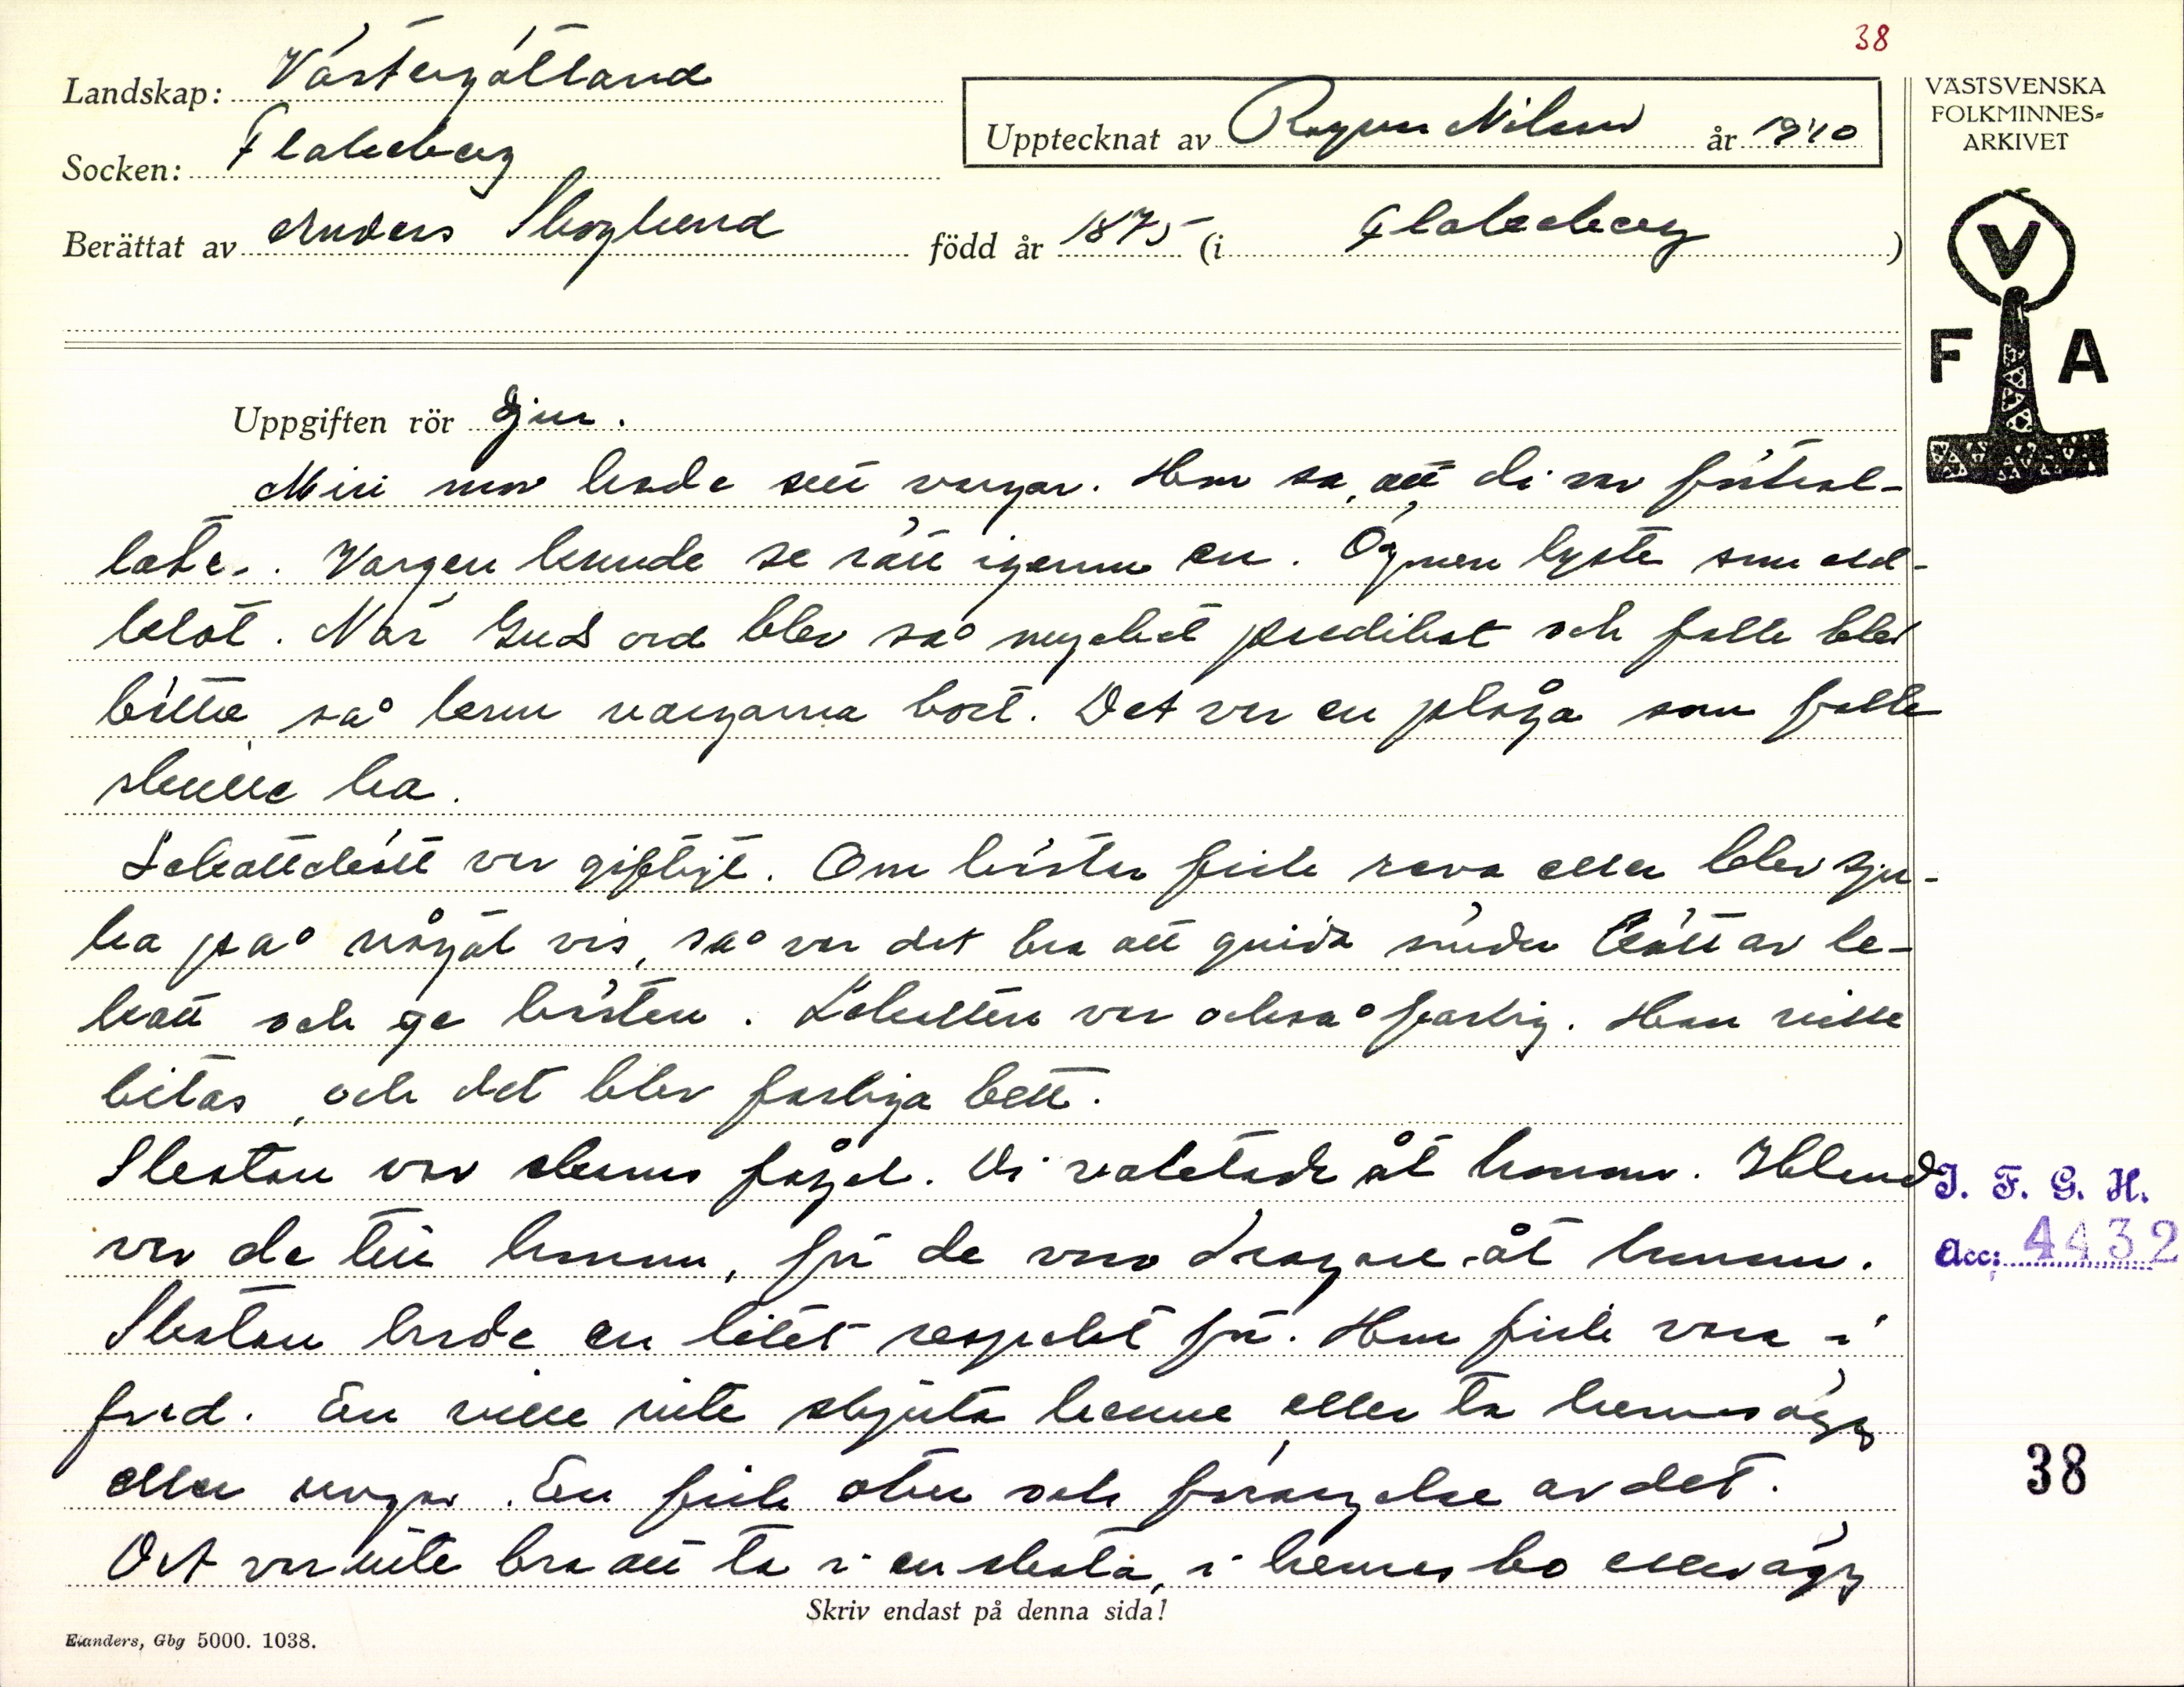 38
Landskap: Västergötland
Socken: Flakeberg
Upptecknat av Ragnar Nilsson år 1940
Berättat av Anders Skoglund född år 1875 (i Flakeberg)
VÄSTSVENSKA
FOLKMINNES=
ARKIVET
V
F A
Uppgiften rör Djur.
Min mor hade sett vargar. Hon sa, att di var förtrol-
lade. Vargen kunde se rätt igenom en. Ögonen lyste som eld-
klot. När Guds ord blev så mycket predikat och folk blev
bättre, så kom vargarna bort. Det var en plåga som folk
skulle ha.
Lekattekött var giftigt. Om hästar fick reva eller blev sju-
ka på något vis, så var det bra att gnida sönder kött av le-
katt och ge hästen. Lekatten var också farlig. Han ville
bitas, och det blev farliga bett.
Skatan var hennes fågel. Di vaktade åt honom. Ibland
var de till honom, för de voro dragare åt honom.
Skatan hade en litet respekt för. Hon fick vara i
fred. En ville inte skjuta henne, eller ta hennes ägg
eller ungar. En fick otur och förargelse av det.
Det var inte bra att ta i en skata, i hennes bo eller ägg
I. F. G. H.
Acc: 4432
38
Skriv endast på denna sida!
Elanders, Gbg 5000. 1038.